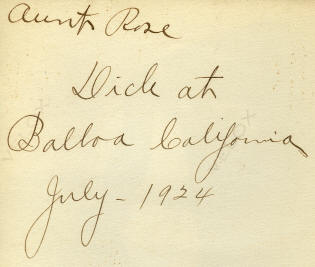 Aunt Rose
Dick at
Balboa California
July - 1924